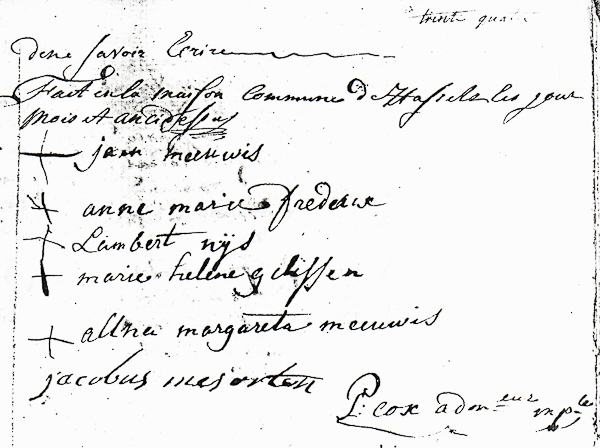 trente qua
dene savoir Ecrire
Fait en la maison Commune de Hasselt les jour
Mois et an cidessus
jaen meeuwis
anne marie frederix
Lambert nijs
marie helene gelissen
allna margareta meeuwis
jacobus mesorten
P. cox adm eur mp le